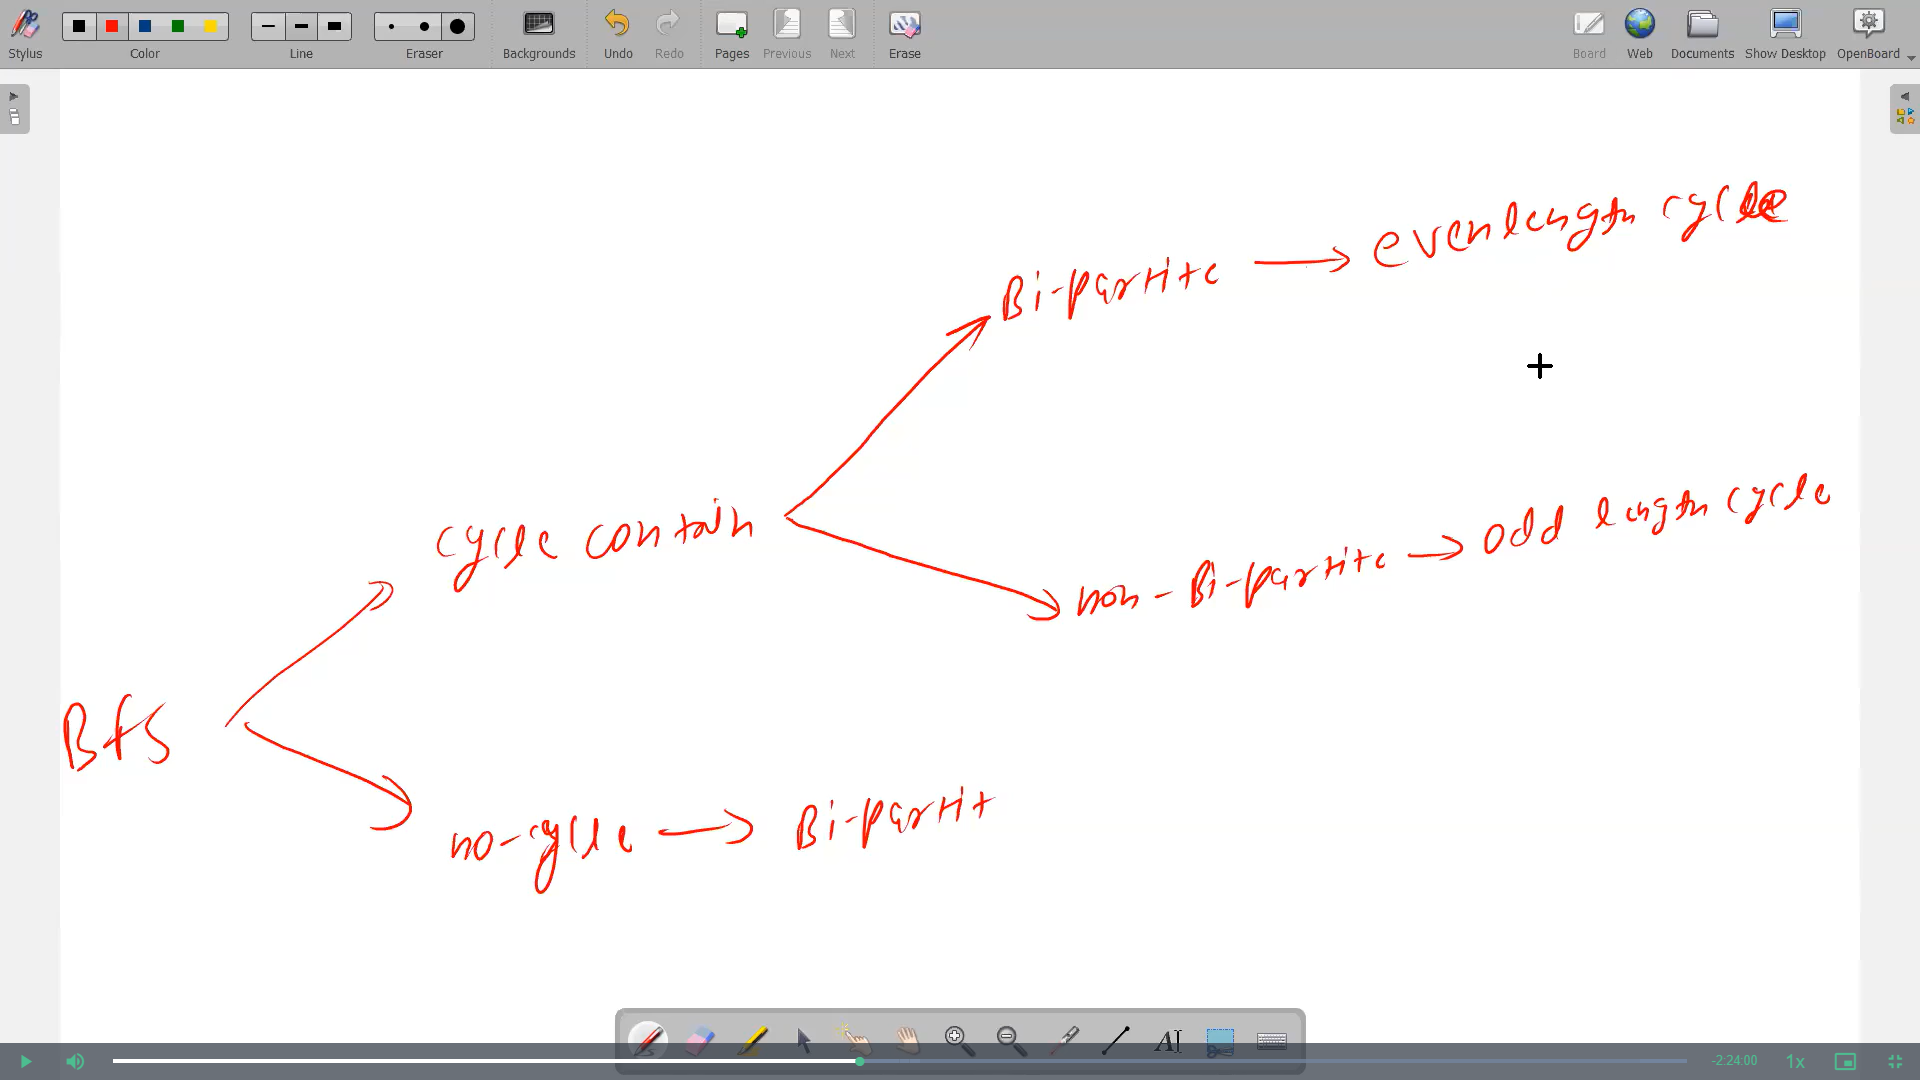 Stylus
Color
Line
Eraser
Backgrounds
Undo
Redo
Pages
Previous
Next
Erase
Board
Web
Documents
Show Desktop
OpenBoard
Bi-partite → even length cycle
cycle contain
non-Bi-partite → odd length cycle
Bfs
no-cycle → Bi-partit
AI
-2:24:00
1x